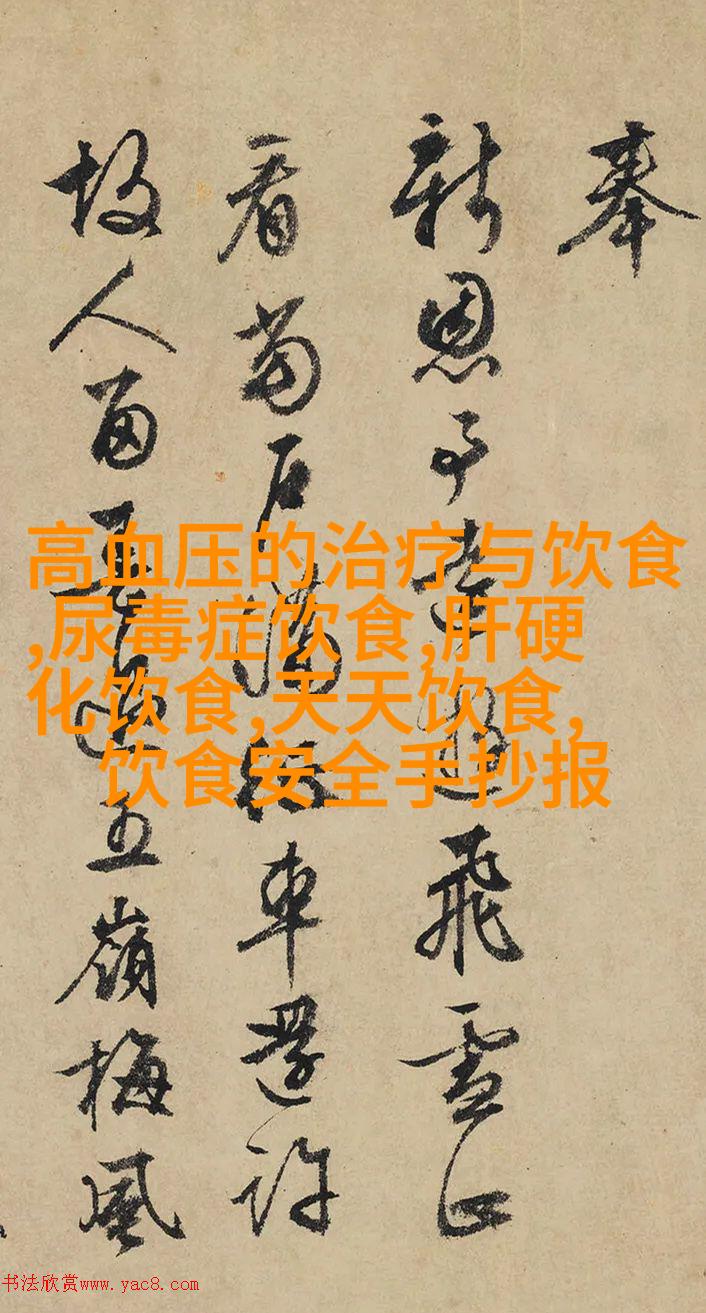 奉
新恩予飛雪正
看當滿車還許
故人留五嶺梅風
高血压的治疗与饮食
,尿毒症饮食,肝硬
化饮食,天天饮食,
饮食安全手抄报
书法欣赏www.yac8.com